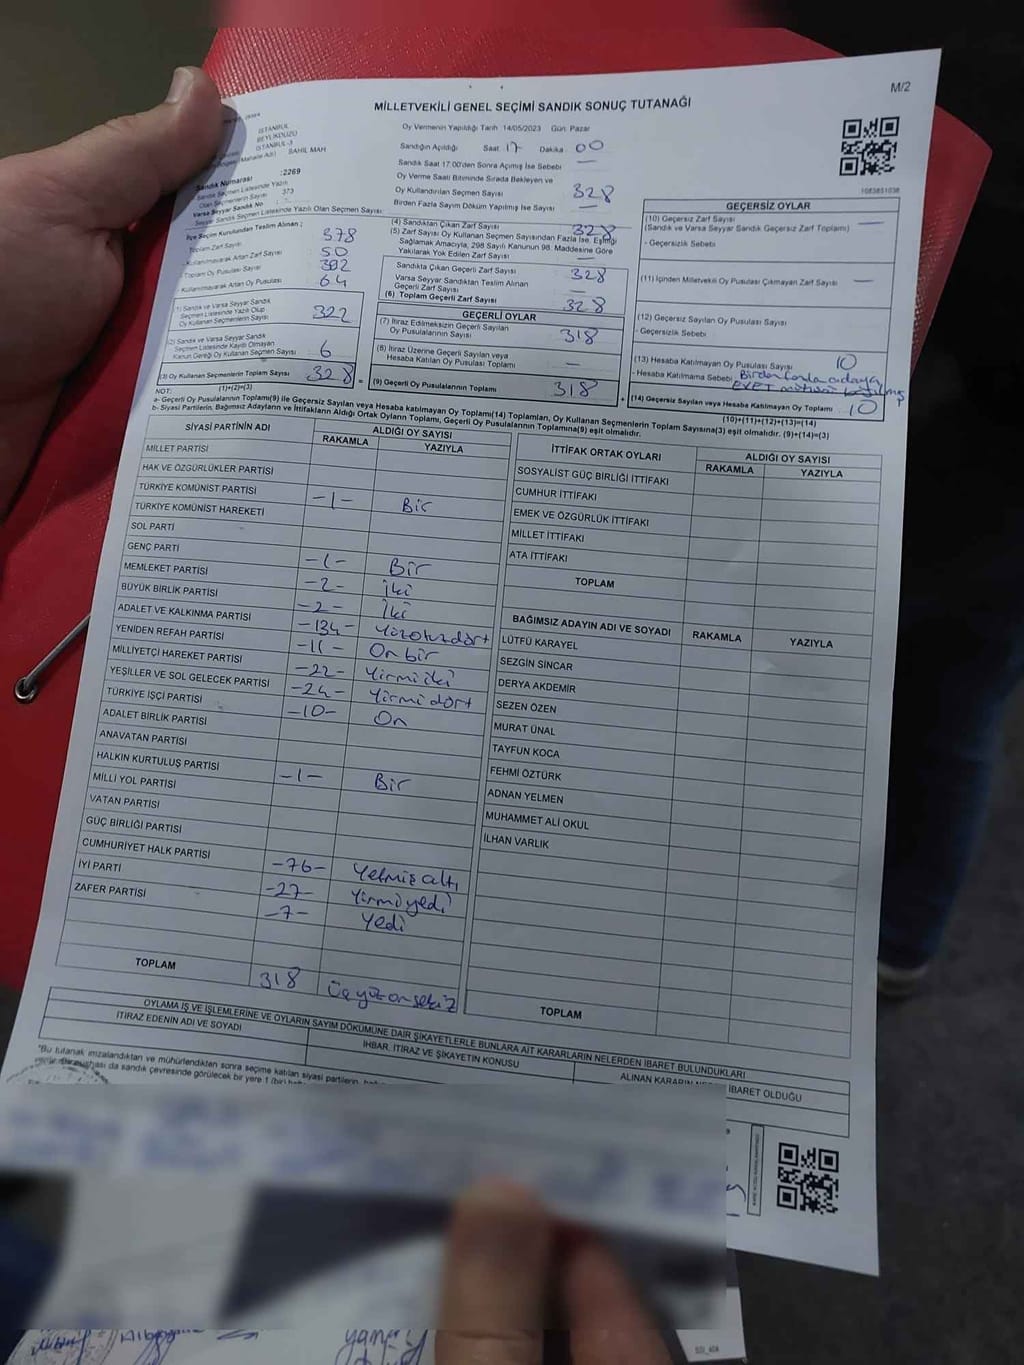 M/2
MİLLETVEKİLİ GENEL SEÇİMİ SANDIK SONUÇ TUTANAĞI
İSTANBUL
BEYLİKDÜZÜ
İSTANBUL-3
SAHİL MAH
Sandık Numarası :2269
Sandık Seçmen Listesinde Yazılı
Olan Seçmenlerin Sayısı 373
Varsa Seyyar Sandık No
Seyyar Sandık Seçmen Listesinde Yazılı Olan Seçmen Sayısı:
İlçe Seçim Kurulundan Teslim Alınan ;
Toplam Zarf Sayısı 378
- Kullanılmayarak Artan Zarf Sayısı 50
- Toplam Oy Pusulası Sayısı
- Kullanılmayarak Artan Oy Pusulası 64
(1) Sandık ve Varsa Seyyar Sandık
Seçmen Listesinde Yazılı Olup
Oy Kullanan Seçmenlerin Sayısı 322
(2) Sandık ve Varsa Seyyar Sandık
Seçmen Listesinde Kayıtlı Olmayan
Kanun Gereği Oy Kullanan Seçmen Sayısı 6
(3) Oy Kullanan Seçmenlerin Toplam Sayısı 328
(1)+(2)=(3)
Oy Vermenin Yapıldığı Tarih 14/05/2023 Gün: Pazar
Sandığın Açıldığı Saat 17 Dakika 00
Sandık Saat 17:00'den Sonra Açılmış İse Sebebi —
Oy Verme Saati Bitiminde Sırada Bekleyen ve
Oy Kullandırılan Seçmen Sayısı 328
Birden Fazla Sayım Döküm Yapılmış İse Sayısı —
(4) Sandıktan Çıkan Zarf Sayısı 328
(5) Zarf Sayısı Oy Kullanan Seçmen Sayısından Fazla İse, Eşitliği
Sağlamak Amacıyla, 298 Sayılı Kanunun 98. Maddesine Göre
Yakılarak Yok Edilen Zarf Sayısı —
Sandıkta Çıkan Geçerli Zarf Sayısı 328
Varsa Seyyar Sandıktan Teslim Alınan
Geçerli Zarf Sayısı —
(6) Toplam Geçerli Zarf Sayısı 328
GEÇERLİ OYLAR
(7) İtiraz Edilmeksizin Geçerli Sayılan
Oy Pusulalarının Sayısı 318
(8) İtiraz Üzerine Geçerli Sayılan veya
Hesaba Katılan Oy Pusulası Toplamı —
= (9) Geçerli Oy Pusulalarının Toplamı 318 +
1083851038
GEÇERSİZ OYLAR
(10) Geçersiz Zarf Sayısı —
(Sandık ve Varsa Seyyar Sandık Geçersiz Zarf Toplamı)
- Geçersizlik Sebebi
(11) İçinden Milletvekili Oy Pusulası Çıkmayan Zarf Sayısı —
(12) Geçersiz Sayılan Oy Pusulası Sayısı
- Geçersizlik Sebebi
(13) Hesaba Katılmayan Oy Pusulası Sayısı 10
- Hesaba Katılmama Sebebi Birden fazla adaya
EVET mührü basılmış
(14) Geçersiz Sayılan veya Hesaba Katılmayan Oy Toplamı 10
(10)+(11)+(12)+(13)=(14)
NOT:
a- Geçerli Oy Pusulalarının Toplamı(9) ile Geçersiz Sayılan veya Hesaba katılmayan Oy Toplamı(14) Toplamları, Oy Kullanan Seçmenlerin Toplam Sayısına(3) eşit olmalıdır. (9)+(14)=(3)
b- Siyasi Partilerin, Bağımsız Adayların ve İttifakların Aldığı Ortak Oyların Toplamı, Geçerli Oy Pusulalarının Toplamına(9) eşit olmalıdır.
SİYASİ PARTİNİN ADI ALDIĞI OY SAYISI
RAKAMLA YAZIYLA
MİLLET PARTİSİ
HAK VE ÖZGÜRLÜKLER PARTİSİ
TÜRKİYE KOMÜNİST PARTİSİ -1- Bir
TÜRKİYE KOMÜNİST HAREKETİ
SOL PARTİ
GENÇ PARTİ -1- Bir
MEMLEKET PARTİSİ -2- İki
BÜYÜK BİRLİK PARTİSİ -2- İki
ADALET VE KALKINMA PARTİSİ -134- Yüzotuzdört
YENİDEN REFAH PARTİSİ -11- On bir
MİLLİYETÇİ HAREKET PARTİSİ -22- Yirmi iki
YEŞİLLER VE SOL GELECEK PARTİSİ -24- Yirmi dört
TÜRKİYE İŞÇİ PARTİSİ -10- On
ADALET BİRLİK PARTİSİ
ANAVATAN PARTİSİ
HALKIN KURTULUŞ PARTİSİ -1- Bir
MİLLİ YOL PARTİSİ
VATAN PARTİSİ
GÜÇ BİRLİĞİ PARTİSİ
CUMHURİYET HALK PARTİSİ -76- Yetmiş altı
İYİ PARTİ -27- Yirmiyedi
ZAFER PARTİSİ -7- Yedi
TOPLAM 318 Üçyüzonsekiz
İTTİFAK ORTAK OYLARI ALDIĞI OY SAYISI
RAKAMLA YAZIYLA
SOSYALİST GÜÇ BİRLİĞİ İTTİFAKI
CUMHUR İTTİFAKI
EMEK VE ÖZGÜRLÜK İTTİFAKI
MİLLET İTTİFAKI
ATA İTTİFAKI
TOPLAM
BAĞIMSIZ ADAYIN ADI VE SOYADI RAKAMLA YAZIYLA
LÜTFÜ KARAYEL
SEZGİN SİNCAR
DERYA AKDEMİR
SEZEN ÖZEN
MURAT ÜNAL
TAYFUN KOCA
FEHMİ ÖZTÜRK
ADNAN YELMEN
MUHAMMET ALİ OKUL
İLHAN VARLIK
TOPLAM
OYLAMA İŞ VE İŞLEMLERİNE VE OYLARIN SAYIM DÖKÜMÜNE DAİR ŞİKAYETLERLE BUNLARA AİT KARARLARIN NELERDEN İBARET BULUNDUKLARI
İTİRAZ EDENİN ADI VE SOYADI İHBAR, İTİRAZ VE ŞİKAYETİN KONUSU ALINAN KARARIN İBARET OLDUĞU
"Bu tutanak imzalandıktan ve mühürlendikten sonra seçime katılan siyasi partilerin,
da sandık çevresinde görülecek bir yere 1 (bir)